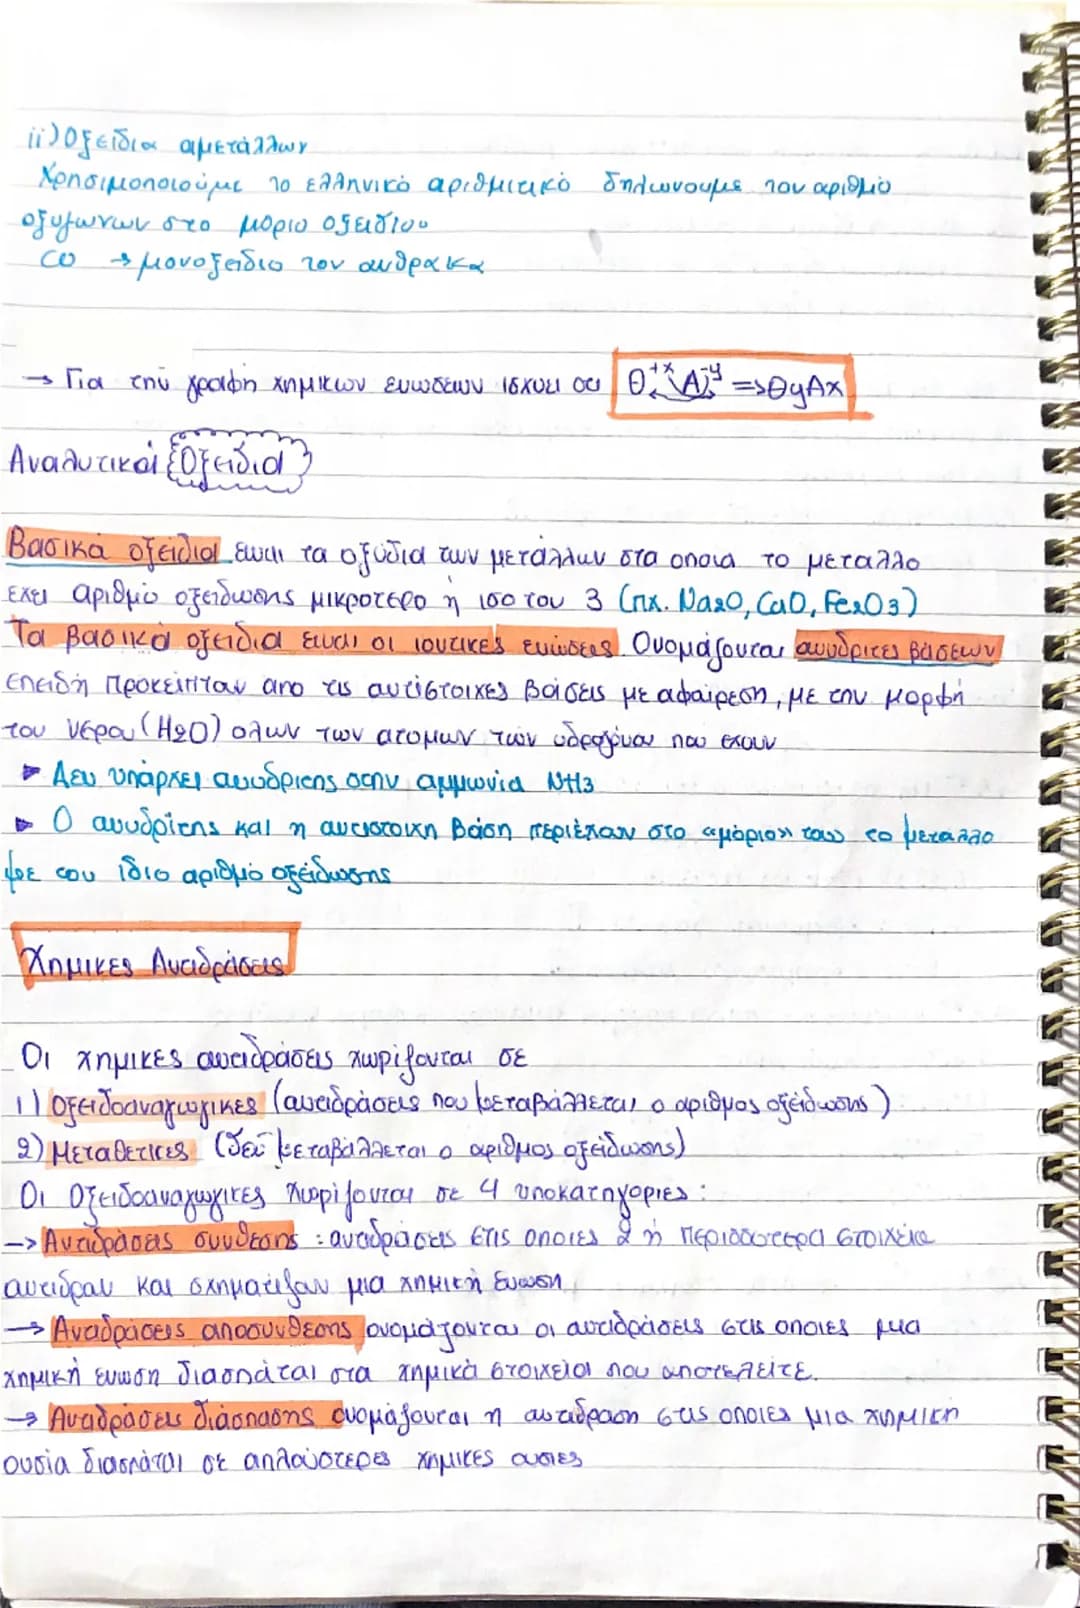 ii) Οξείδια αμετάλλων
Χρησιμοποιούμε το ελληνικό αριθμιτικό δηλώνουμε τον αριθμό
οξυγώνων στο μόριο οξειδίου
CO → μονοξείδιο του ανθρακα
→ Για την γραφή χημικων ενωσεων ισχυει οτι Θ⁺ˣ A⁻ʸ => ΘyAx
Αναλυτικά Οξείδια
Βασικά οξείδια ειναι τα οξύδια των μετάλλων στα οποια το μεταλλο
εχει αριθμό οξείδωσης μικροτερο ή ισο του 3 (πχ. Na2O, CaO, Fe2O3)
Τα βασικά οξείδια ειναι οι ιοντικες ενώσεις. Ονομάζονται ανυδριτες βάσεων
επειδή προκείπταν απο τις αντίστοιχες βάσεις με αφαίρεση, με την μορφή
του νερου (H2O) ολων των ατομων των υδρογόνου που εχουν
▸ Δεν υπάρχει ανυδριτης στην αμμωνία NH3
▸ Ο ανυδρίτης και η αντιστοιχη βάση περιέχουν στο «μόριο» τους το μεταλλο
με τον ίδιο αριθμό οξείδωσης
Χημικες Αντιδράσεις
Οι χημικες αντιδράσεις χωρίζονται σε
1) Οξειδοαναγωγικες (αντιδράσεις που μεταβάλλεται ο αριθμος οξείδωσης)
2) Μεταθετικες (δεν μεταβάλλεται ο αριθμος οξείδωσης)
Οι Οξειδοαναγωγικες χωρίζονται σε 4 υποκατηγορίες:
→ Αντιδράσεις συνθεσης : αντιδράσεις στις οποιες 2 ή περισσοτερα στοιχεία
αντιδραν και σχηματιζαν μια χημική ενωση
→ Αντιδράσεις αποσυνθεσης ονομάζονται οι αντιδράσεις στις οποιες μια
χημική ενωση διασπάται στα χημικά στοιχεία που αποτελείτε.
→ Αντιδράσεις διάσπασης ονομάζονται η αντιδραση στις οποιες μια χημικη
ουσία διασπάται σε απλούστερες χημικες ουσιες